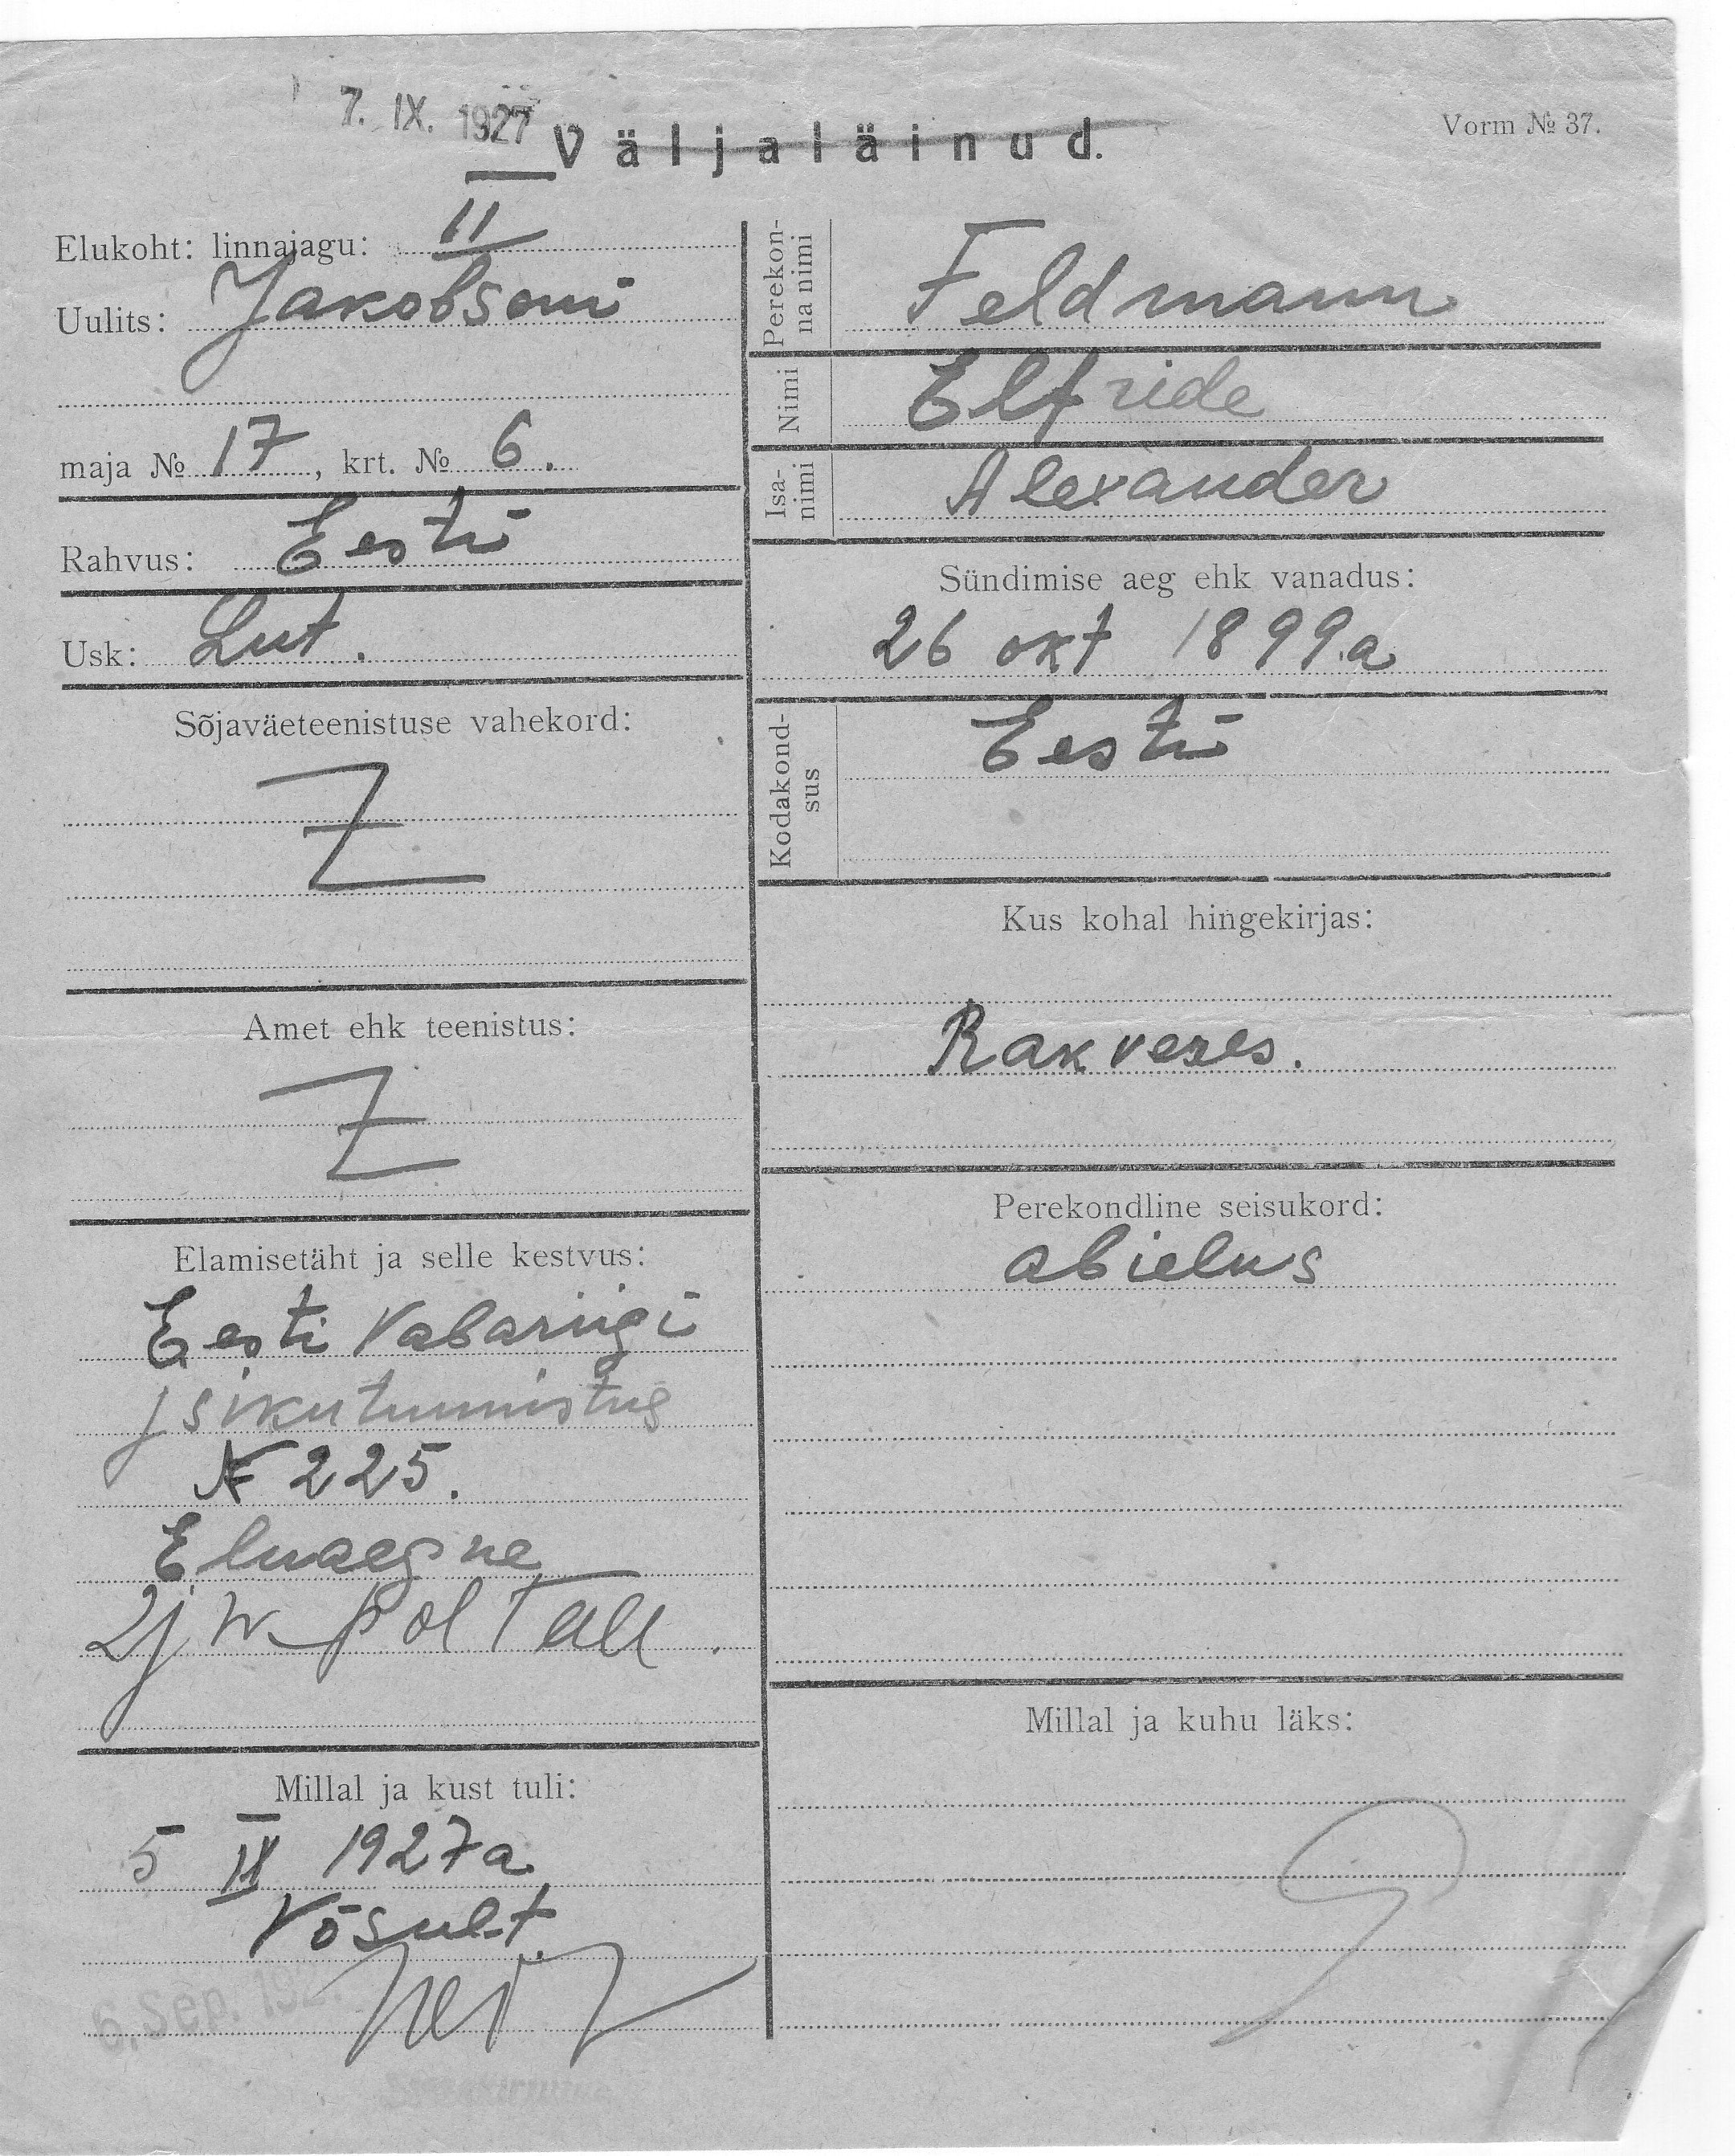 7. IX. 1927
Väljaläinud.
Vorm № 37.
Elukoht: linnajagu: II
Uulits: Jakobsoni
maja № 17, krt. № 6.
Rahvus: Eesti
Usk: Lut.
Sõjaväeteenistuse vahekord:
Z
Amet ehk teenistus:
Z
Elamisetäht ja selle kestvus:
Eesti Vabariigi
Isikutunnistus
№ 225.
Eluaegne
Pol Tall.
Millal ja kust tuli:
5 IX 1927 a
Võsult.
6. Sep. 192
Perekon-
na nimi
Feldmann
Nimi
Elfride
Isa-
nimi
Alexander
Sündimise aeg ehk vanadus:
26 okt 1899.a
Kodakond-
sus
Eesti
Kus kohal hingekirjas:
Rakveres.
Perekondline seisukord:
abielus
Millal ja kuhu läks: